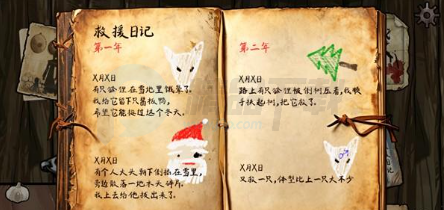 救援日记
第一年
X月X日
有只狼狸在雪地里饿晕了。
我给它留下只酱板鸭,
希望它能挨过这个冬天。
X月X日
有个人大头朝下倒插在雪里,
旁边散落一地木头碎片。
我上去给他拔出来了。
第二年
X月X日
路上有只狼被倒树压着,我顺
手扶起树,把它救了。
X月X日
又救一只,体型比上一只大不少